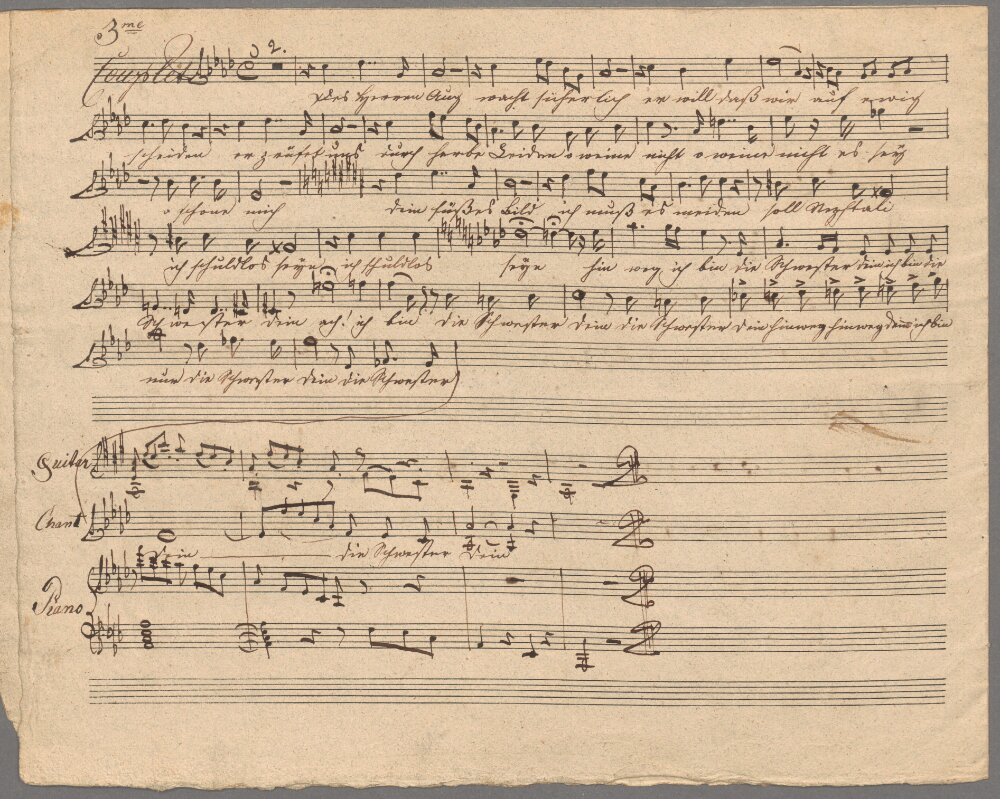 3me
Couplet 2.
des Herren Aug wacht sicherlich er will daß wir auf ewig
scheiden er prüfet uns durch herbe Leiden o weine nicht o weine nicht es sey
o schone mich dein süßes Bild ich muß es meiden soll Nephtali
ich schuldlos seyn ich schuldlos seyn hin weg ich bin die Schwester dein ich bin die
Schwester dein ach! ich bin die Schwester dein die Schwester dein hinweg hinweg denn ich bin
nur die Schwester dein die Schwester
Guitar
Chant
dein die Schwester dein
Piano